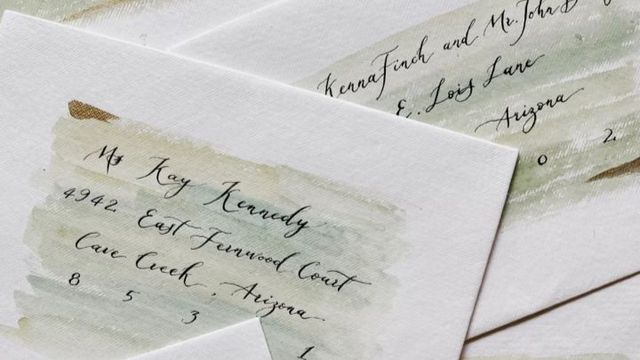 Ms Kay Kennedy
4942 East Fernwood Court
Cave Creek, Arizona
8 5 3 1
Kenna Finch and Mr. John D
E. Lois Lane
Arizona
0 2